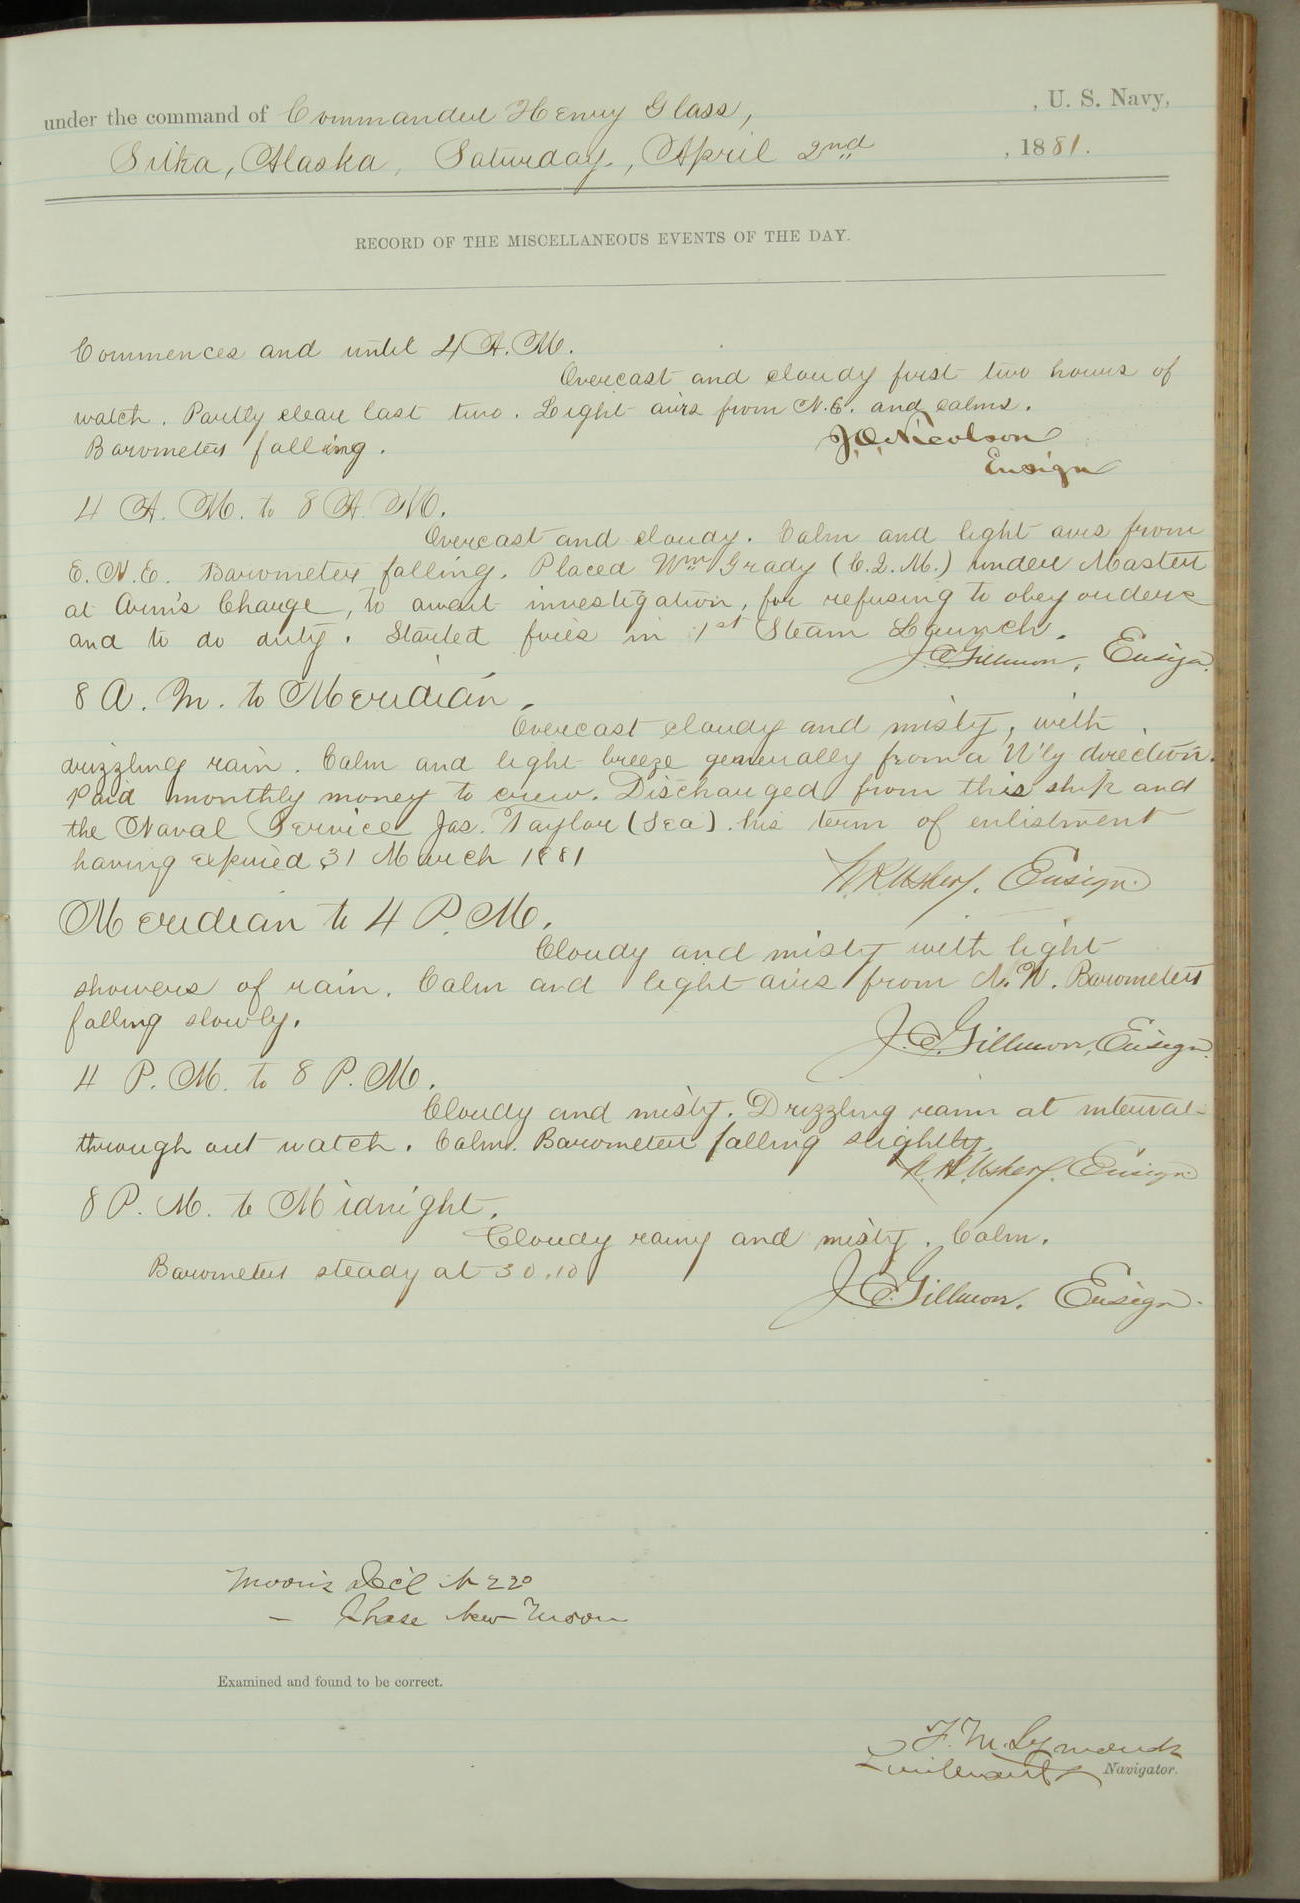 under the command of Commander Henry Glass, , U. S. Navy,
Sitka, Alaska, Saturday, April 2nd , 1881.
RECORD OF THE MISCELLANEOUS EVENTS OF THE DAY.
Commences and until 4 A.M.
Overcast and cloudy first two hours of
watch. Partly clear last two. Light airs from N.E. and calms.
Barometer falling.
J.O. Nicolson
Ensign
4 A. M. to 8 A. M.
Overcast and cloudy. Calm and light airs from
E.N.E. Barometer falling. Placed Wm Grady (C.Q.M.) under Master
at Arm's Charge, to await investigation, for refusing to obey orders
and to do duty. Started fires in 1st Steam Launch.
J.C. Gillmore, Ensign.
8 A. M. to Meridian.
Overcast cloudy and misty, with
drizzling rain. Calm and light breeze generally from a N'ly direction.
Paid monthly money to crew. Discharged from this ship and
the Naval Service Jas. Taylor (Sea). his term of enlistment
having expired 31 March 1881
N.R. Usher, Ensign.
Meridian to 4 P. M.
Cloudy and misty with light
showers of rain. Calm and light airs from N.W. Barometer
falling slowly.
J.C. Gillmore, Ensign.
4 P. M. to 8 P. M.
Cloudy and misty. Drizzling rain at interval
through out watch. Calm. Barometer falling slightly.
N.R. Usher, Ensign.
8 P. M. to Midnight.
Cloudy rainy and misty. Calm.
Barometer steady at 30.10
J.C. Gillmore, Ensign.
Moon's Dec'l N 22°
— Phase New Moon
Examined and found to be correct.
F. M. Symonds
Lieutenant Navigator.